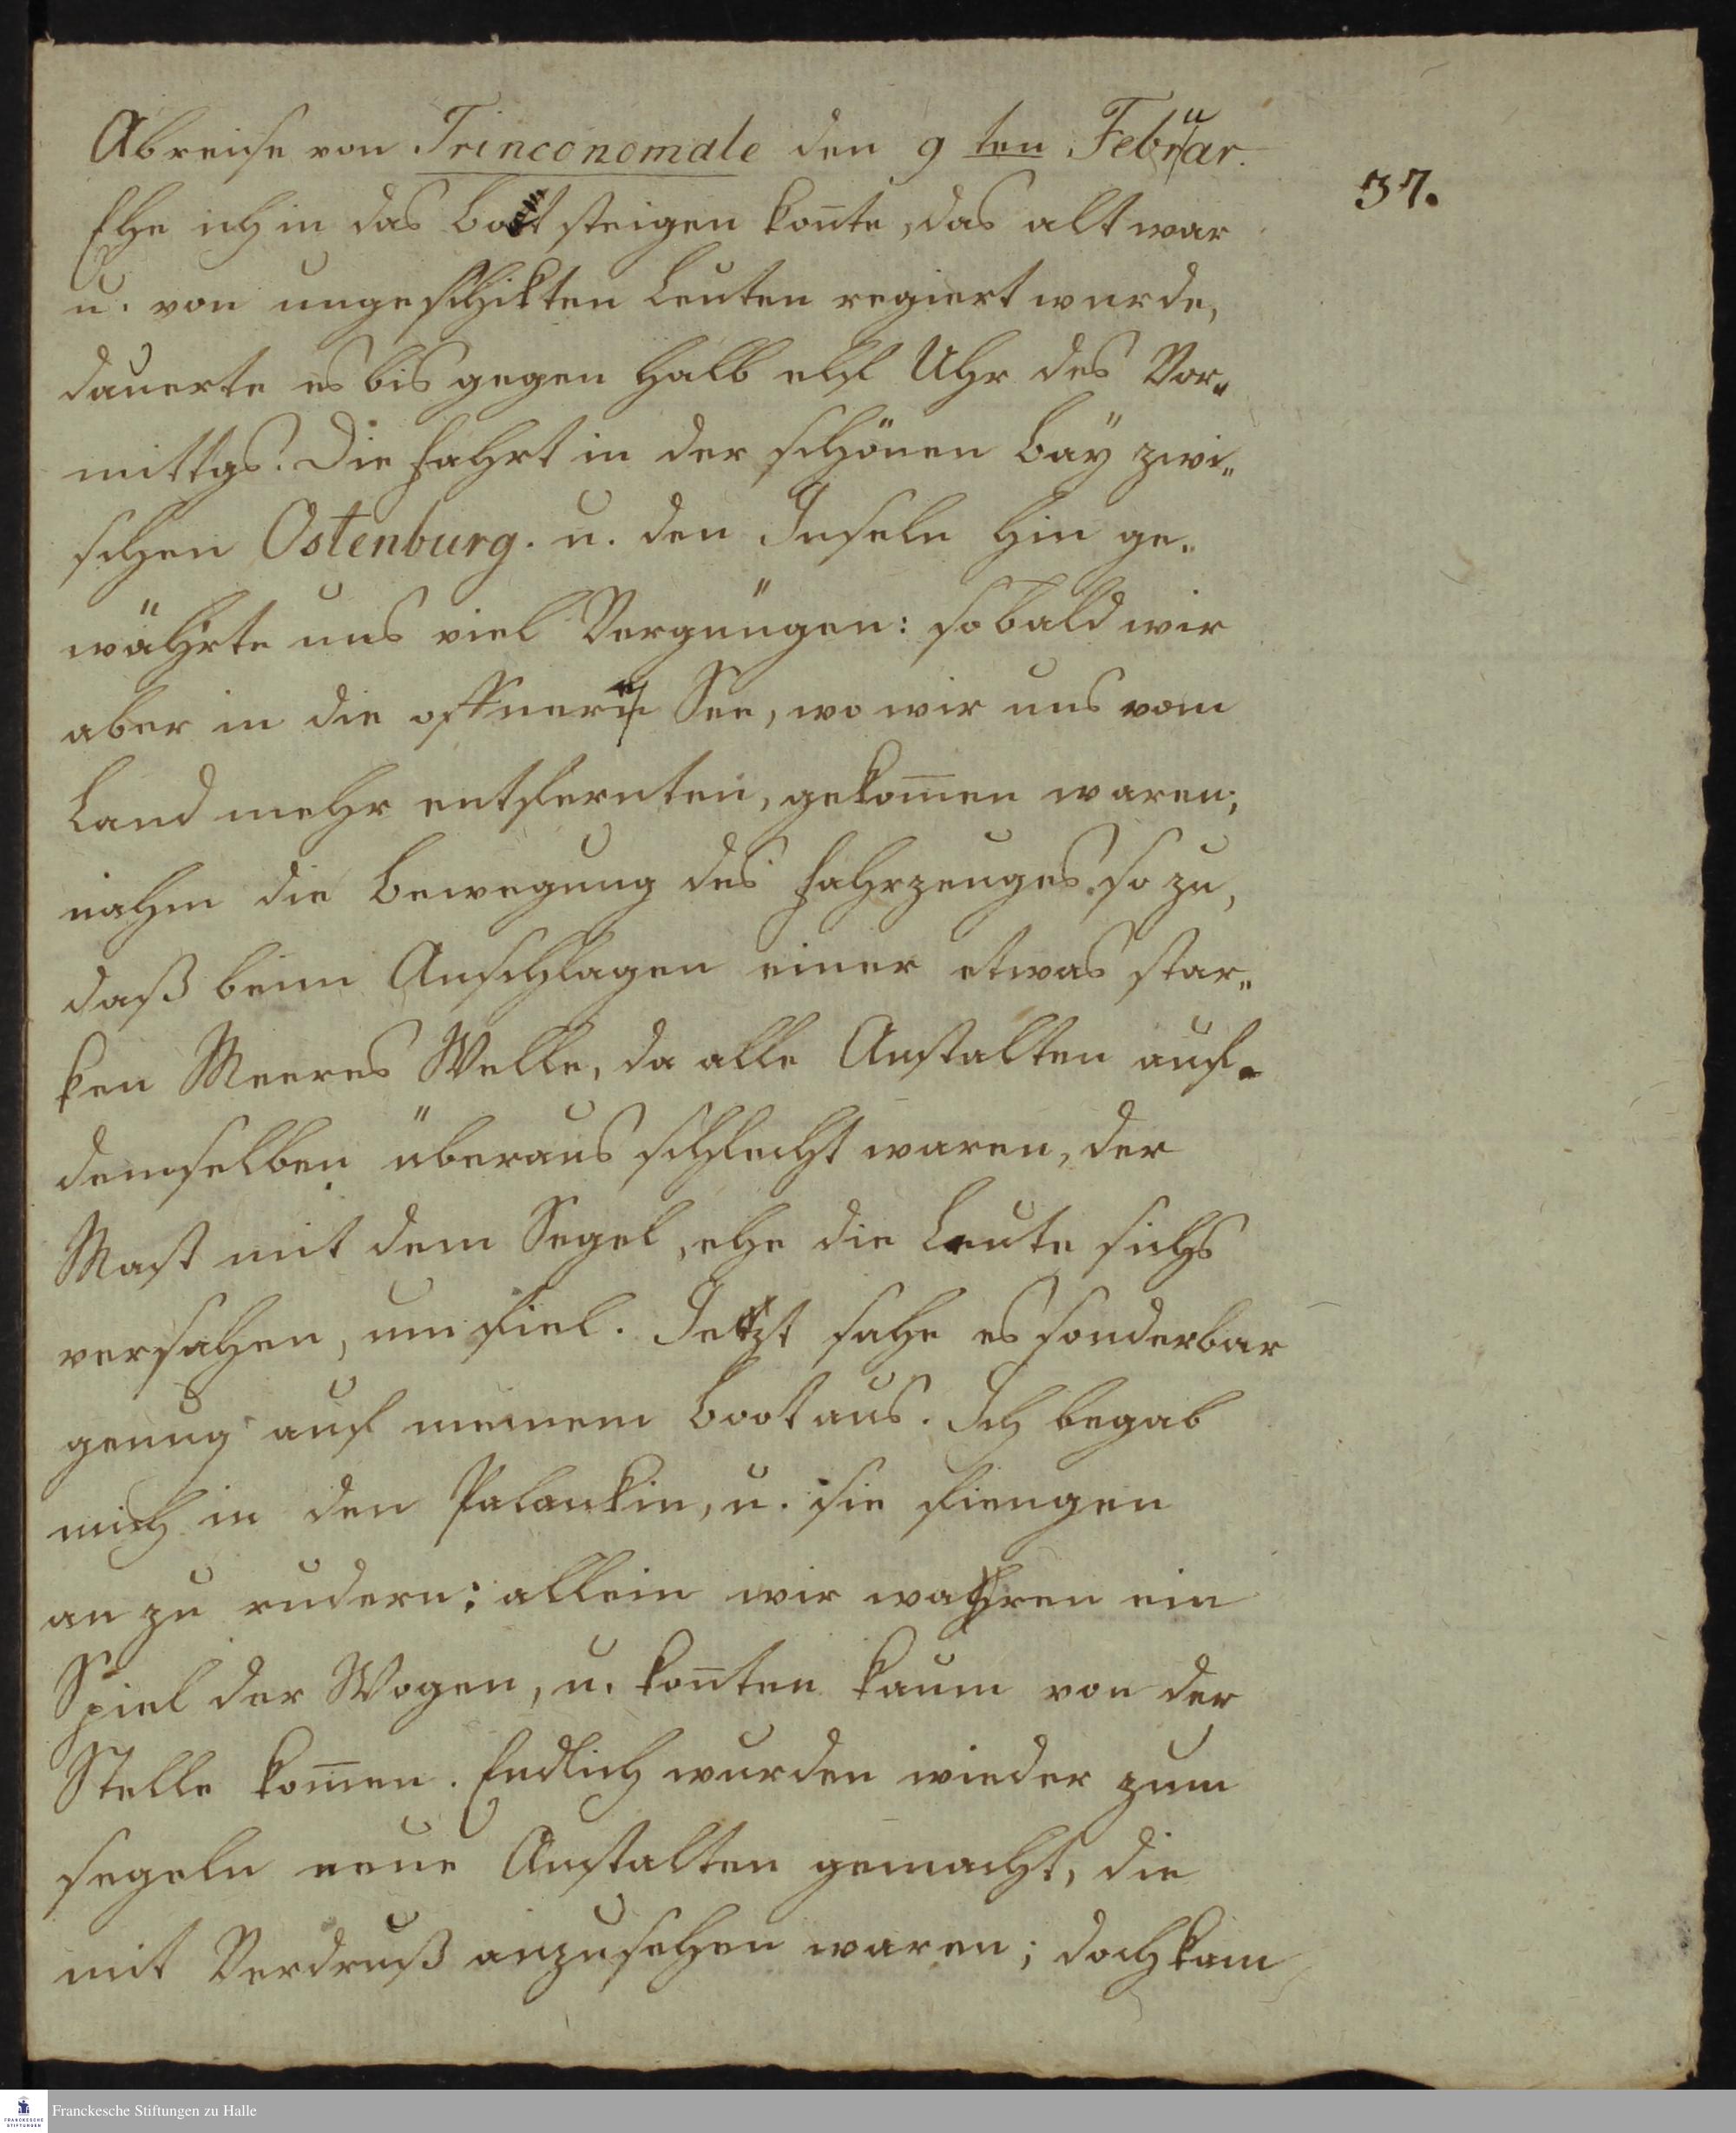 Abreise von Trinconomale den 9 ten Februar.
37.
Ehe ich in das Boot steigen kon̄te, das alt war
u. von ungeschikten Leuten regiert wurde,
dauerte es bis gegen halb elf Uhr des Vor„
mittgs. Die Fahrt in der schönen Bay zwi„
schen Ostenburg. u. den Inseln hin ge„
währte uns viel Vergnügen: sobald wir
aber in die offnere See, wo wir uns vom
Land mehr entfernten, gekom̄en waren,
nahm die Bewegung des Fahrzeuges so zu,
daß beim Anschlagen einer etwas star„
ken Meeres Welle, da alle Anstalten auf
demselben überaus schlecht waren, der
Mast mit dem Segel, ehe die Leute sichs
versahen, um fiel. Jetzt sahe es sonderbar
genug auf meinem Boot aus. Ich begab
mich in den Palankin, u. sie fiengen
an zu rudern: allein wir wahren ein
Spiel der Wogen, u. kon̄ten kaum von der
Stelle kom̄en. Endlich wurden wieder zum
segeln neue Anstalten gemacht, die
mit Verdruß anzusehen waren; doch kam
Franckesche Stiftungen zu Halle